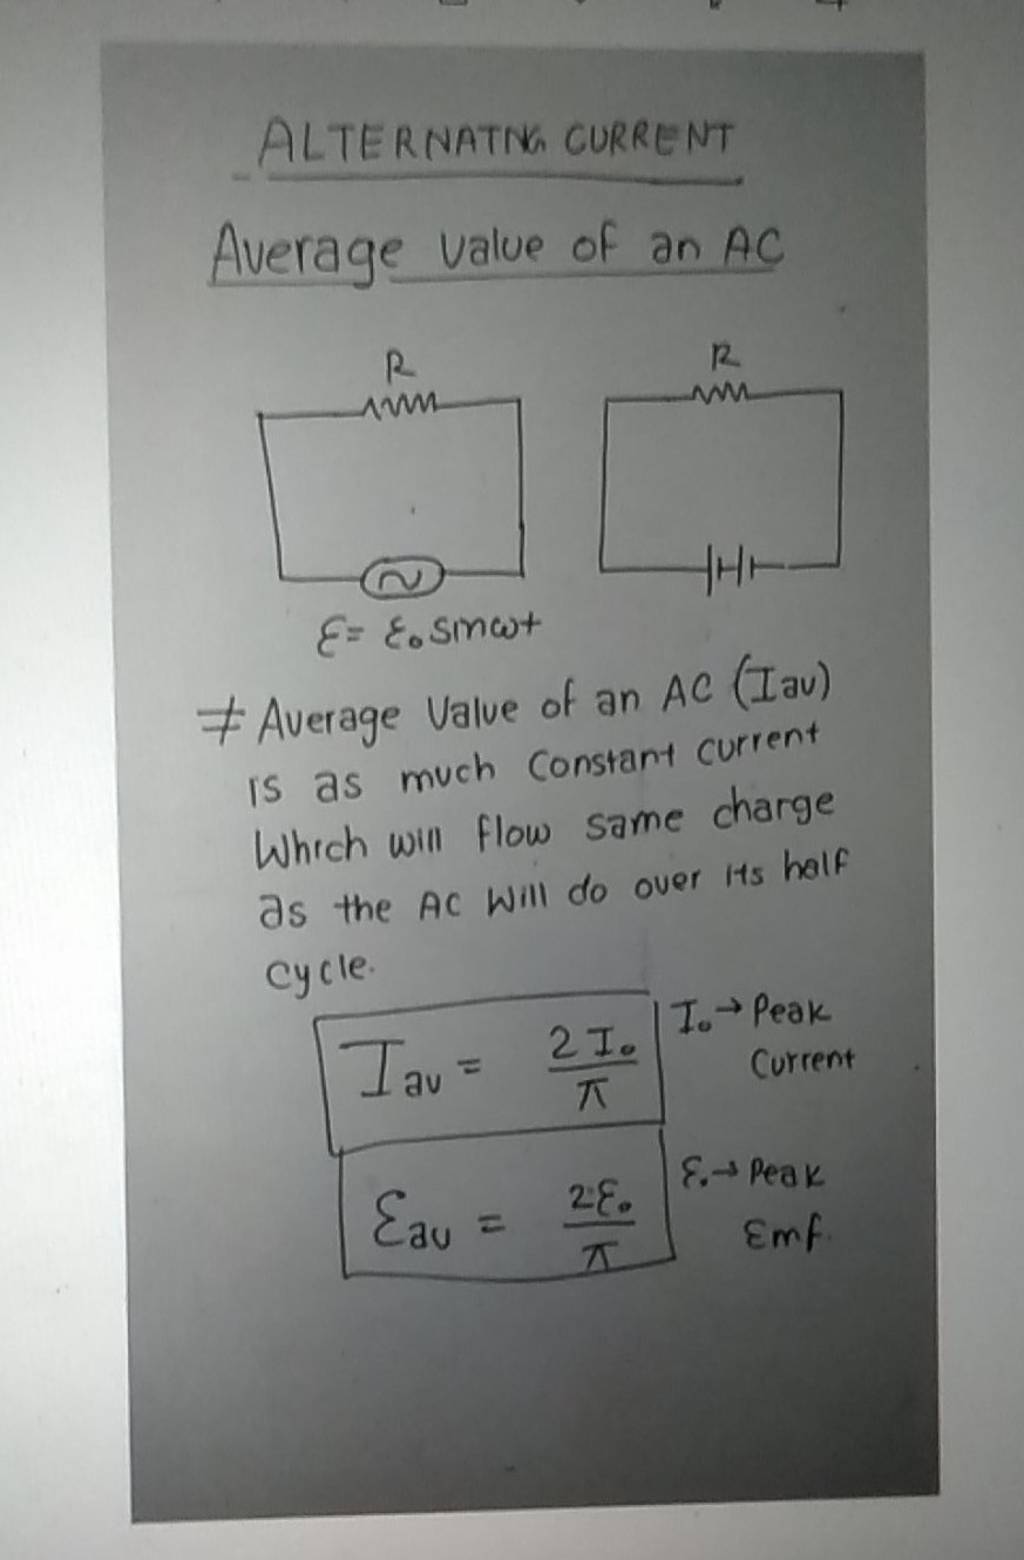 ALTERNATNG CURRENT
Average value of an AC
R
R
ε= ε₀ sinωt
≠ Average Value of an AC (Iav)
is as much Constant current
Which will flow same charge
as the AC Will do over its half
cycle.
Iav = 2I₀/π
I₀→ Peak
Current
εav = 2ε₀/π
ε₀→ Peak
Emf.